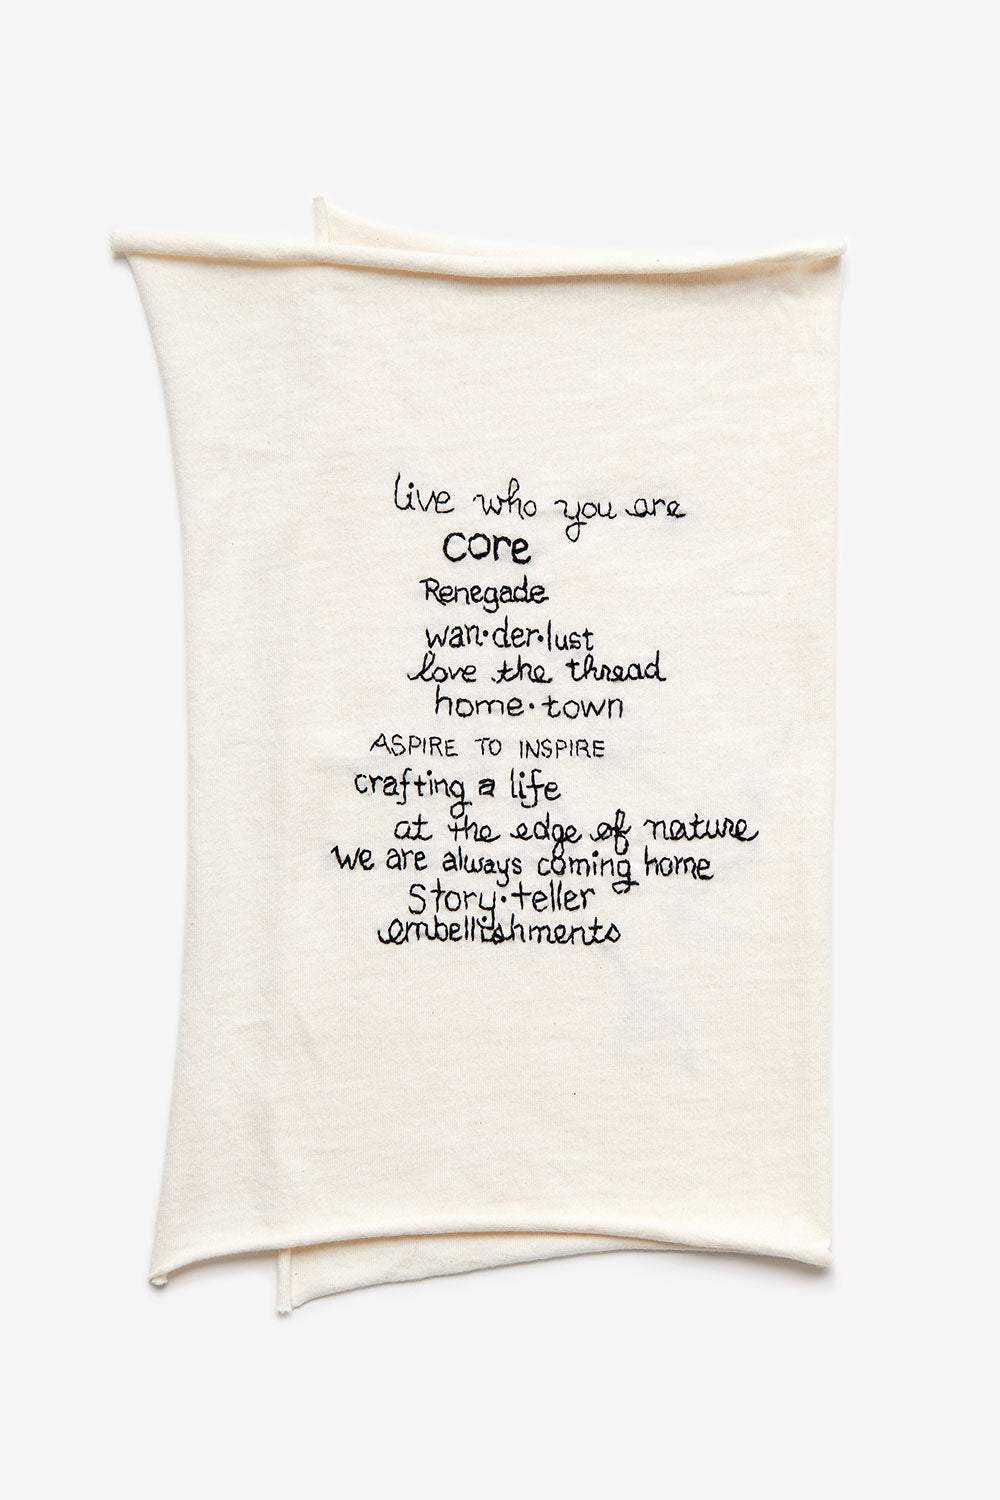 live who you are
core
Renegade
wan·der·lust
love the thread
home·town
ASPIRE TO INSPIRE
crafting a life
at the edge of nature
we are always coming home
Story·teller
embellishments